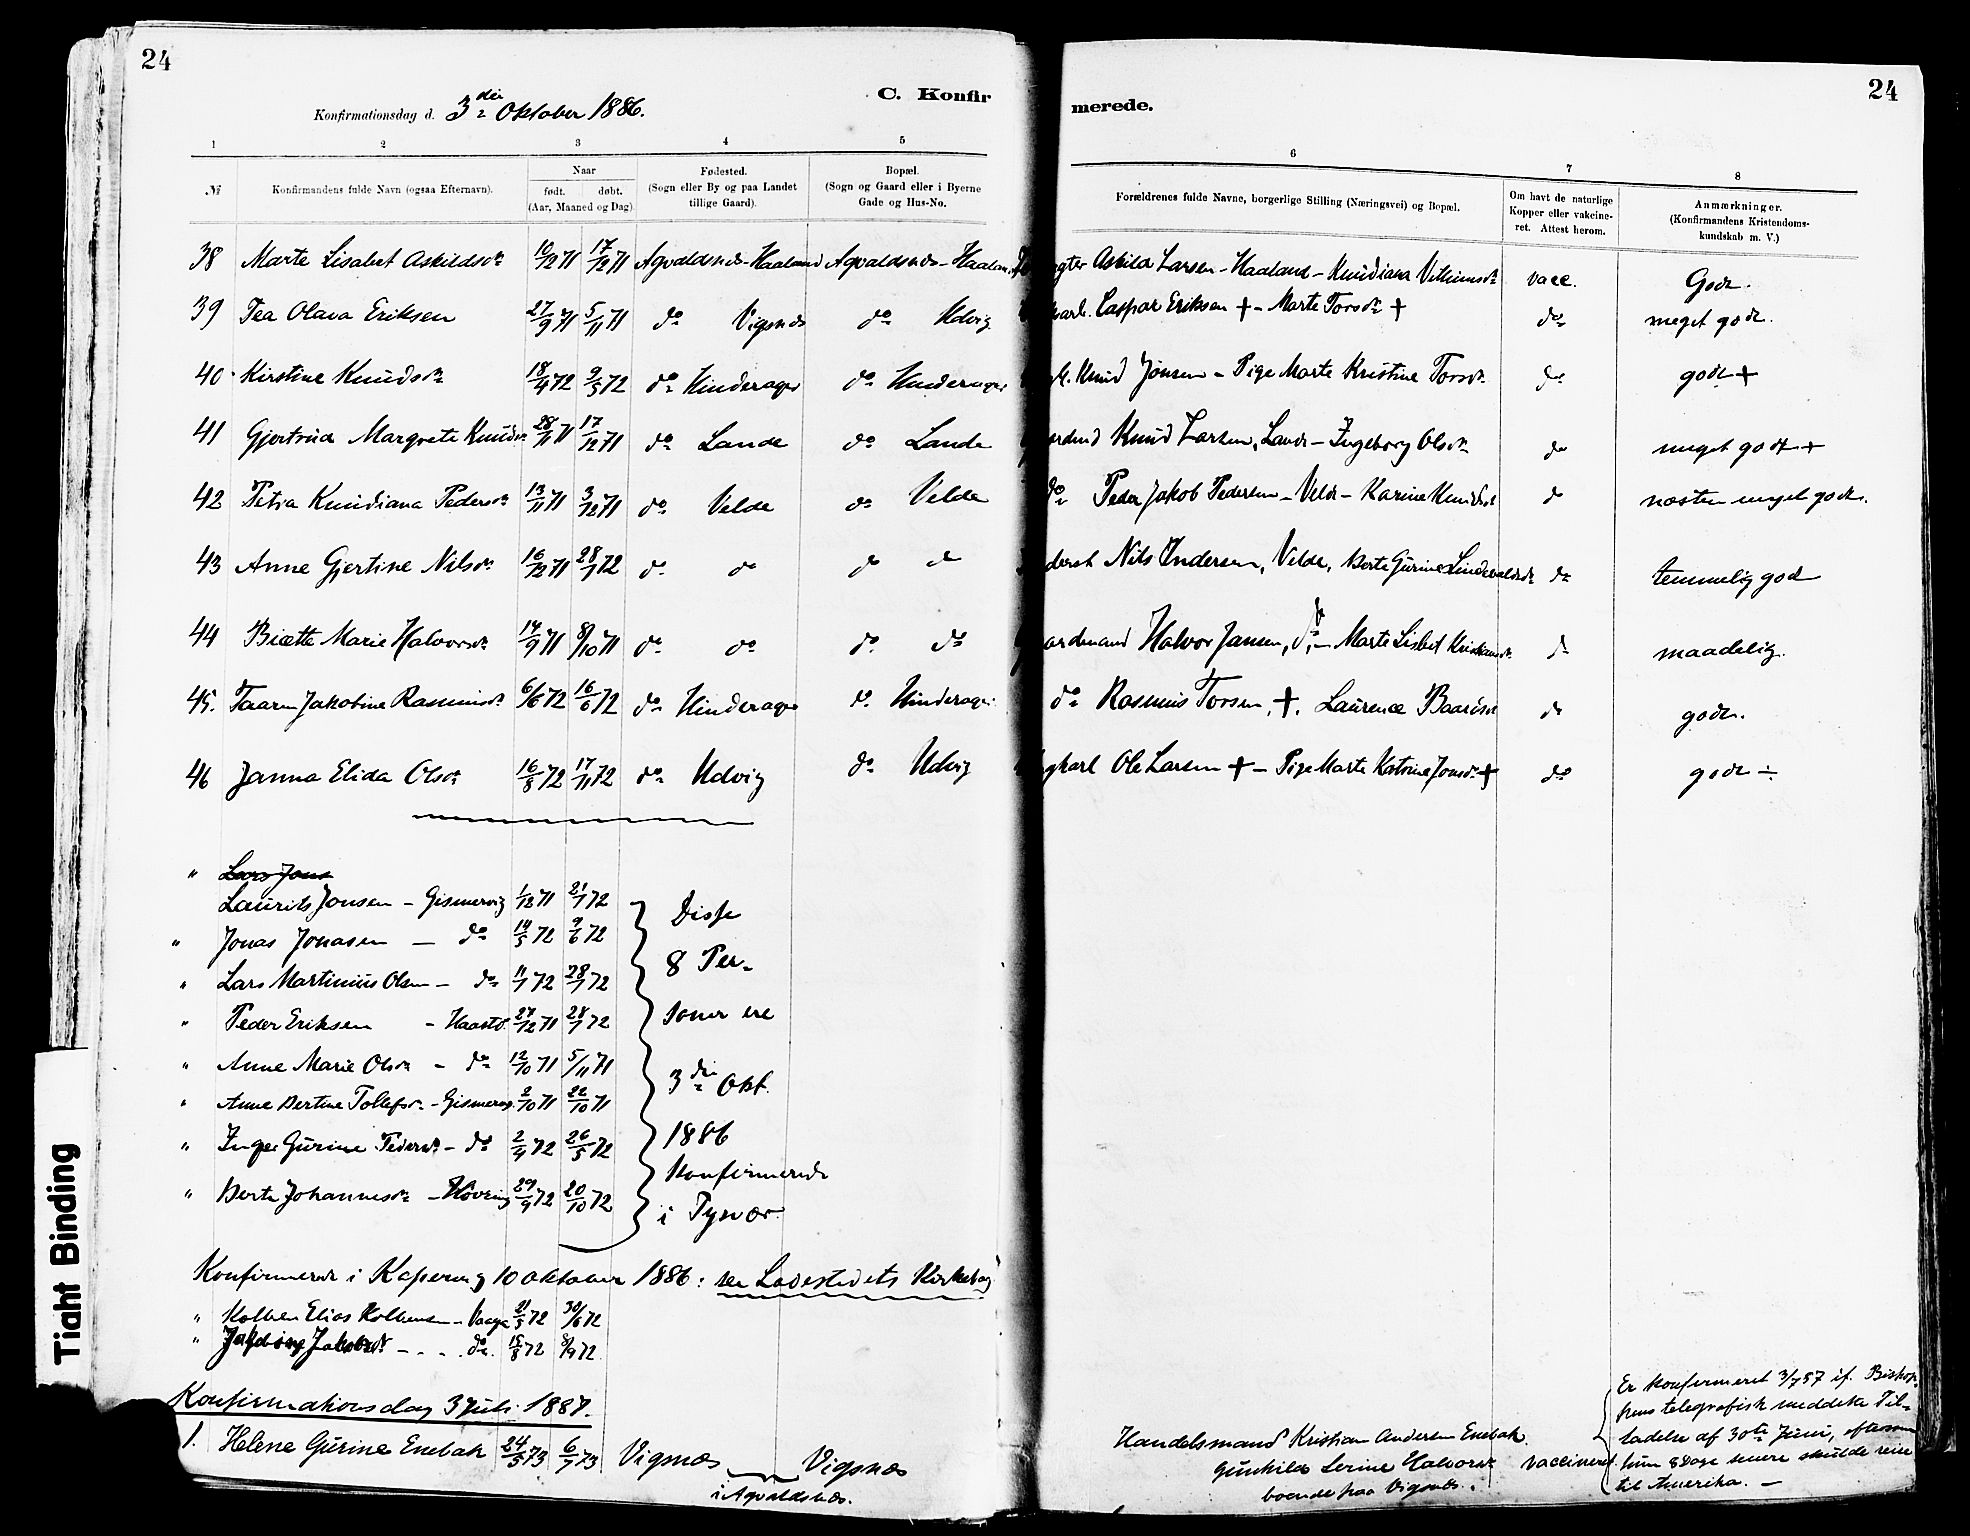 24
C. Konfirmerede.
24
Konfirmationsdag d. 3die Oktober 1886.
1 2 3 4 5 6 7 8
№ Konfirmandens fulde Navn (ogsaa Efternavn). Naar født. døbt. (Aar, Maaned og Dag). Fødested. (Sogn eller By og paa Landet tillige Gaard). Bopæl. (Sogn og Gaard eller i Byerne Gade og Hus-No. Forældrenes fulde Navne, borgerlige Stilling (Næringsvei) og Bopæl. Om havt de naturlige Kopper eller vakcineret. Attest herom. Anmærkninger. (Konfirmandens Kristendomskundskab m. V.)
38 Marte Lisabet Askildsdr 10/12 71 17/12 71 Agvaldsnæs-Haaland Agvaldsnæs-Haaland Askild Larsen-Haaland-Knudiana Villumsdr vacc. Godt.
39 Tea Olava Eriksen 27/9 71 5/11 71 do Vigsnæs do Udvig Caspar Eriksen + - Marte Torsdr + do meget godt.
40 Kirstine Knudsdr 18/4 72 9/5 72 do Hinderager do Hinderager Knud Jonsen - Pige Marte Kristine Torsdr do godt +
41 Gjertrud Margrete Knudsdr 28/11 71 17/12 71 do Lande do Lande Knud Larsen, Lande - Ingeborg Olsdr do meget godt +
42 Petra Knudiana Pedersdr 13/11 71 3/12 71 do Velde do Velde do Peder Jakob Pedersen - Velde - Karine Knudsdr do næsten meget godt.
43 Anne Gjertine Nilsdr 16/12 71 28/1 72 do do do do Nils Endersen, Velde, Berte Gurine do temmelig godt
44 Birette Marie Halvorsdr 14/9 71 8/10 71 do do do do Gaardmand Halvor Jansen, do, - Marte Lisbet Kristiansdr do maadelig.
45. Taaren Jakobine Rasmusdr 6/6 72 16/6 72 do Hinderager do Hinderager do Rasmus Torsen, +. Laurence Baardsdr do godt.
46 Janna Elida Olsdr 16/8 72 17/11 72 do Udvig do Udvig Ungkarl Ole Larsen + - Pige Marte Katrine Jonsdr + do godt ÷
" Lars Jons
Laurits Jonsen - Gismervig 1/12 71 21/1 72
" Jonas Jonasen - do 14/5 72 9/6 72
" Lars Martinius Olsen - do 11/1 72 28/1 72
" Peder Eriksen - Haasto 24/12 71 28/1 72
" Anne Marie Olsdr - do 12/10 71 5/11 71
" Anne Bertine Tollefsdr - Gismervig 2/10 71 22/10 71
" Inger Gurine Pedersdr - do 2/4 72 26/5 72
" Berte Johannesdr - Høvring 29/9 72 20/10 72
Disse
8 Per-
soner ere
3die Okt.
1886
Konfirmerede
i Tysvær.
Konfirmeret i Kopervig 10 oktober 1886: see Ladestedets Kirkebog
" Kolben Elias Kolbensen - Vaage 21/5 72 30/6 72
" Jakobsdr - . . do. 15/8 72 8/9 72
Konfirmationsdag 3 Juli 1887.
1. Helene Gurine Enebak 24/5 73 6/7 73 Vigsnæs Vigsnæs
i Agvaldsnæs.
Handelsmand Kristian Andersen Enebak
Gunhild Serine Halvorsdr vaccineret
boende paa Vigsnæs.
Er konfirmeret 3/7 87 if. Biskop-
pens telegrafisk meddelte Til-
ladelse af 30te Juni, eftersom
hun 8 Dage senere skulde reise
til Amerika. -
Tight Binding